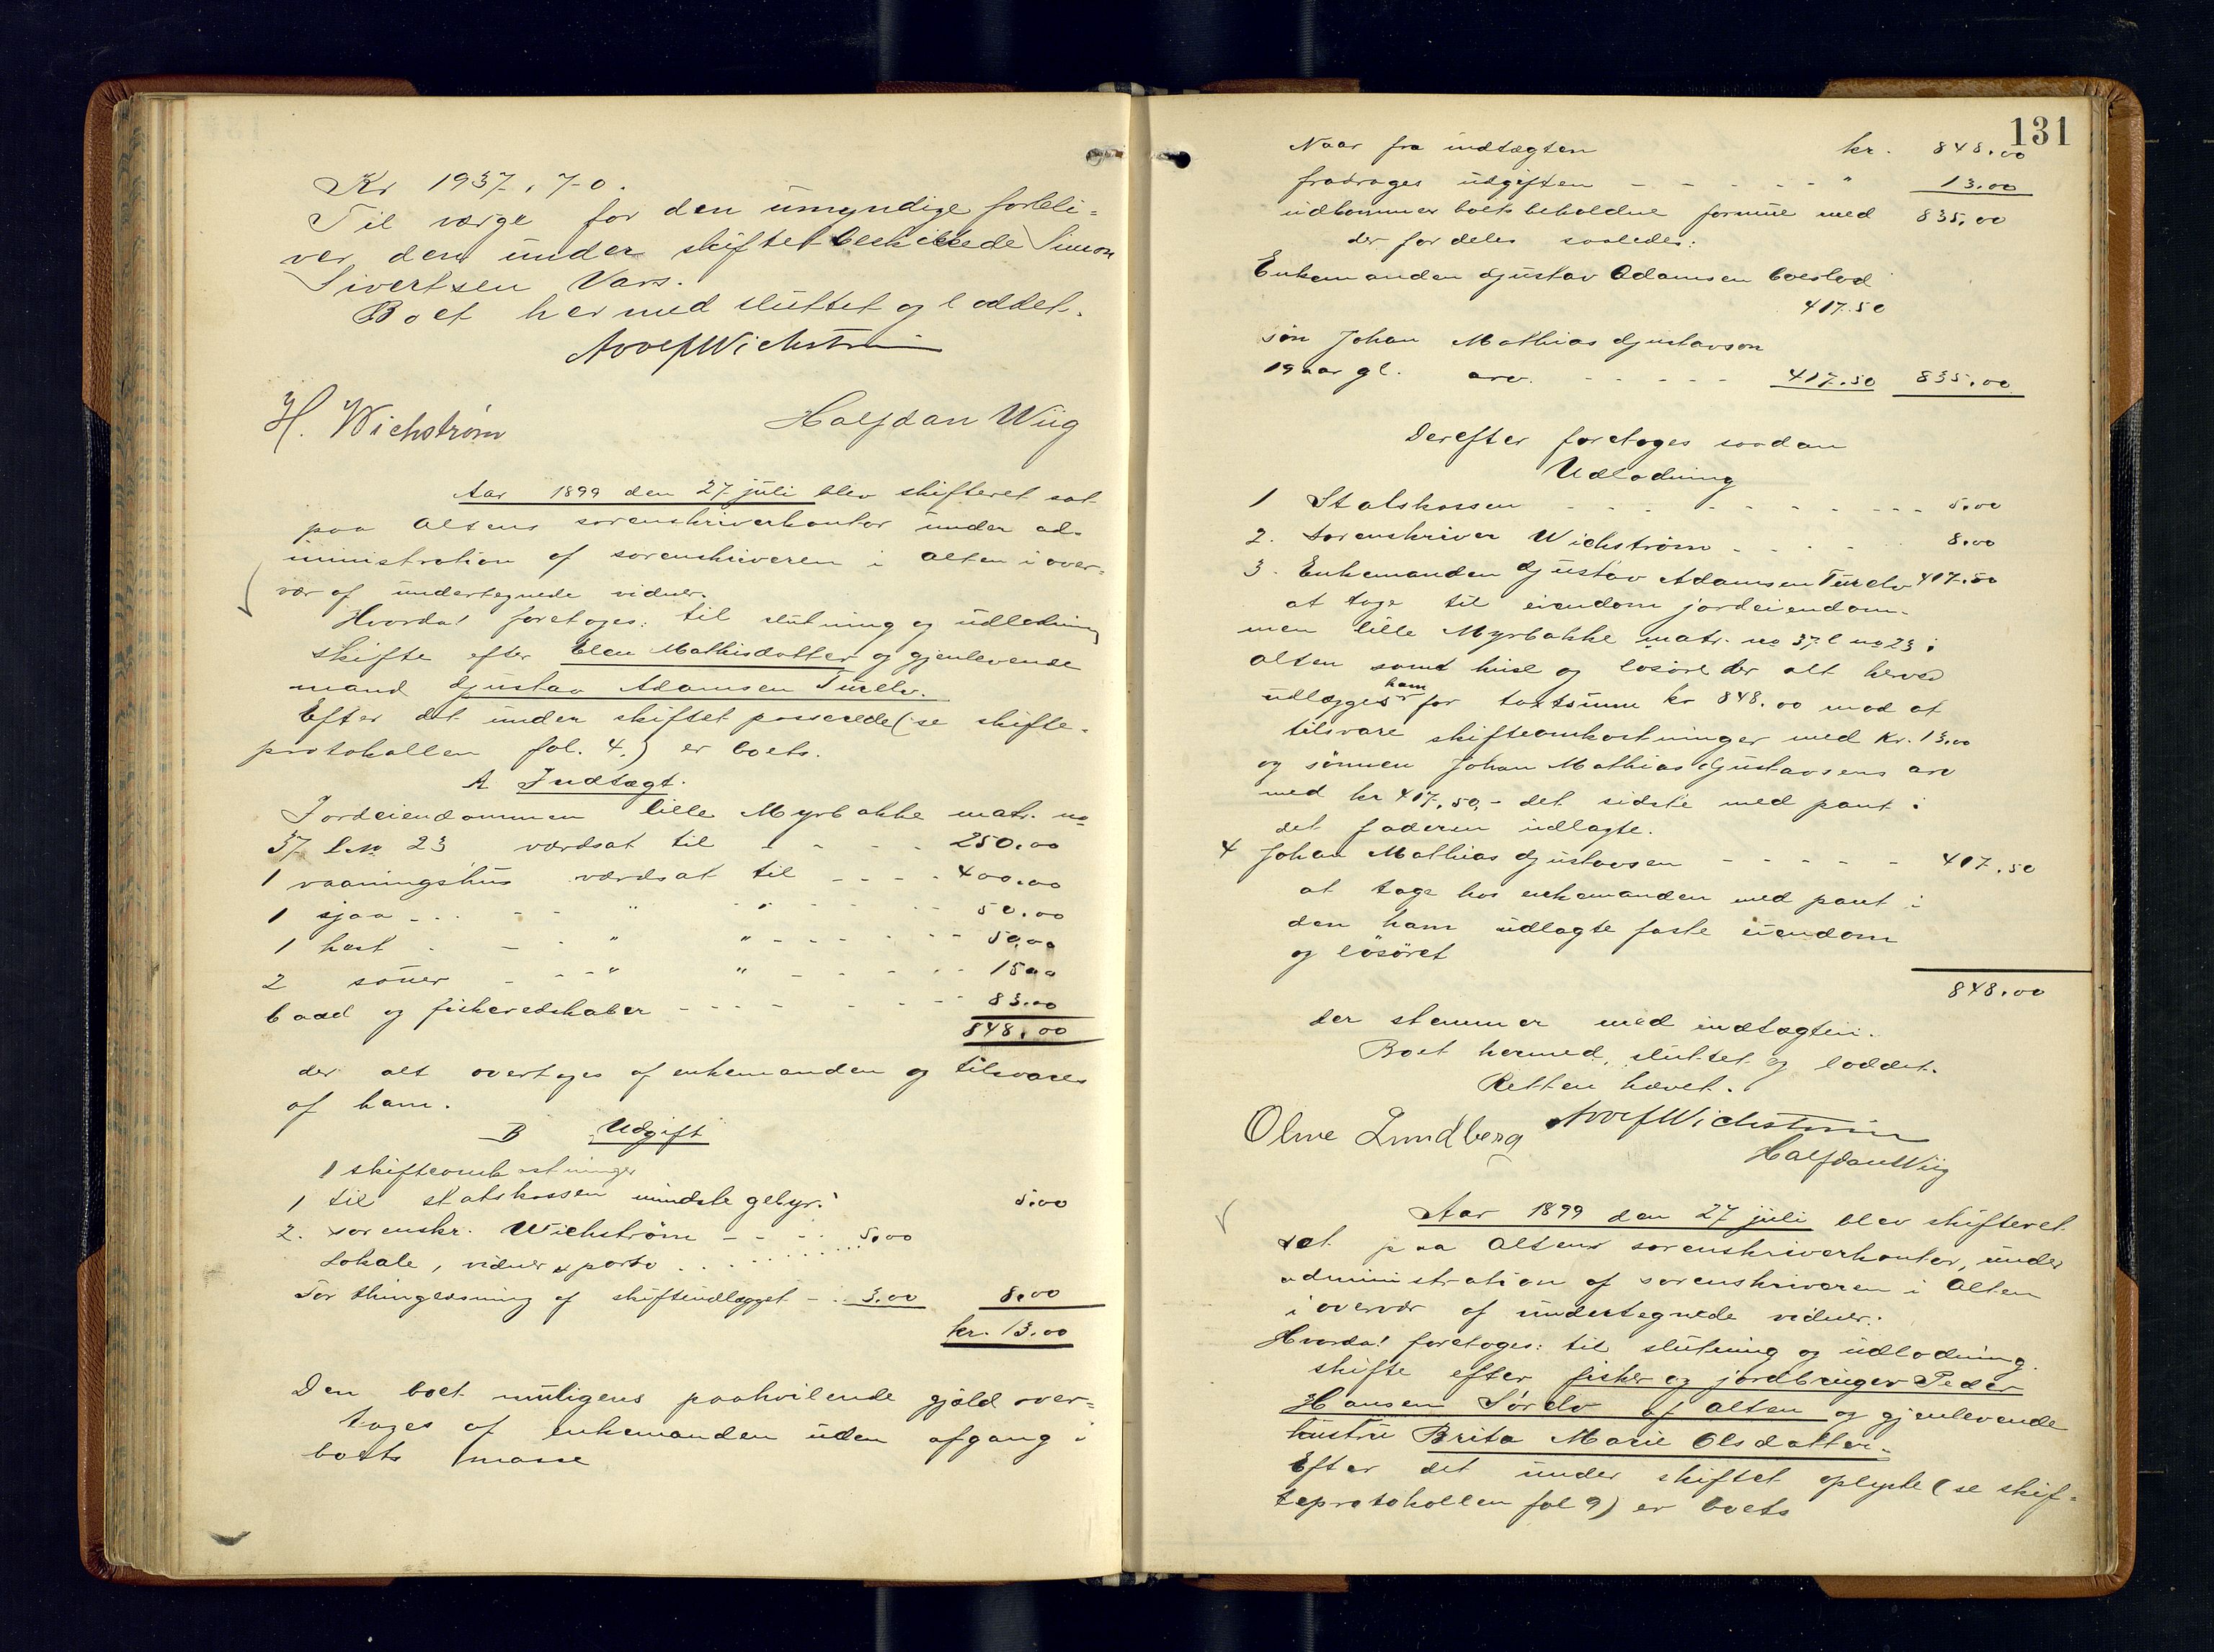 Kr 1937,70.
Til værge for den umyndige forbli=
ver den under skiftet beskikkede Simon
Sivertsen Vars.
Boet hermed sluttet og loddet.
Adolf Wichstrøm
H. Wichstrøm Halfdan Wiig
Aar 1899 den 27 juli blev skifteret sat
paa Altens sorenskriverkontor under ad-
ministration af sorenskriveren i Alten i over-
vær af undertegnede vidner.
Hvorda! foretoges: til slutning og udlodning
skifte efter Elen Mathisdatter og gjenlevende
mand Gjustav Adamsen Turelv.
Efter det under skiftet passerede (se skifte-
protokollen fol. 4.) er boets.
A Indtægt.
Jordeiendommen lille Myrbakke matr. no
37 l.no 23 værdsat til - - - - 250.00
1 vaaningshus værdsat til - - - - 400.00
1 sjaa - - - - - " - " - - - - 50.00
1 hest - - - " " - - - - - - 50.00
2 søuer - - - " " - - - - - - 15.00
baad og fiskeredskaber - - - - - - - 83.00
848.00
der alt overtages af enkemanden og tilsvares
af ham.
B Udgift
1 skifteomkostninger
1 til statskassen mindste gebyr. 5.00
2. sorenskr. Wichstrøm - - - - 5.00
Lokale, vidner & porto . . . . . . .
For thinglæsning af skifteudlægget - . . 3.00 8.00
kr. 13.00
Den boet muligens paahvilende gjæld over-
tages af enkemanden uden afgang i
boets masse
131
Naar fra indtægten kr. 848.00
fradrages udgiften - - - - - " 13.00
udkommer boets beholdne formue med 835.00
der fordeles saaledes:
Enkemanden Gjustav Adamsen boeslod
417.50
søn Johan Mathias Gjustavson
19 aar gl. arv. - - - - - 417.50 835.00
Derefter foretoges saadan
Udlodning
1 Statskassen - - - - - - - - - - - 5.00
2. Sorenskriver Wichstrøm - - - - 8.00
3. Enkemanden Gjustav Adamsen Turelv 417.50
at tage til eiendom jordeiendom-
men lille Myrbakke matr. no 37 l no 23 i
Alten samt huse og løsøre der alt herved
udlægges ham for taxtsum kr 848.00 mod at
tilsvare skifteomkostninger med Kr. 13.00
og sønnen Johan Mathias Gjustavsens arv
med kr 417.50,- det sidste med pant i
det faderen udlagte.
4 Johan Mathias Gjustavsen - - - - - 417.50
at tage hos enkemanden med pant i
den ham udlagte faste eiendom
og løsøret
848.00
der stemmer med indtægten.
Boet hermed, sluttet og loddet.
Retten hævet.
Olme Lundberg Adolf Wichstrøm
Halfdan Wiig
Aar 1899 den 27 juli blev skifteret
sat paa Altens sorenskriverkontor, under
administration af sorenskriveren i Alten
i overvær af undertegnede vidner:
Hvorda! foretoges: til slutning og udlodning.
skifte efter fisker og jordbruger Peder
Hansen Sørelv af Alten og gjenlevende
hustru Brita Marie Olsdatter.
Efter det under skiftet oplyste (se skif=
teprotokollen fol 9) er boets